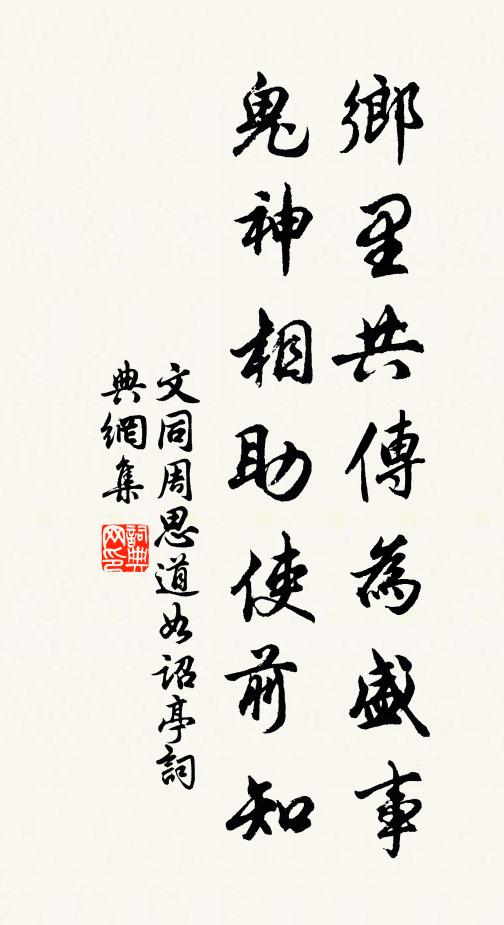 鄉里共傳為盛事
鬼神相助使前知
文同周思道如詔亭詞
典網集
詞典網印